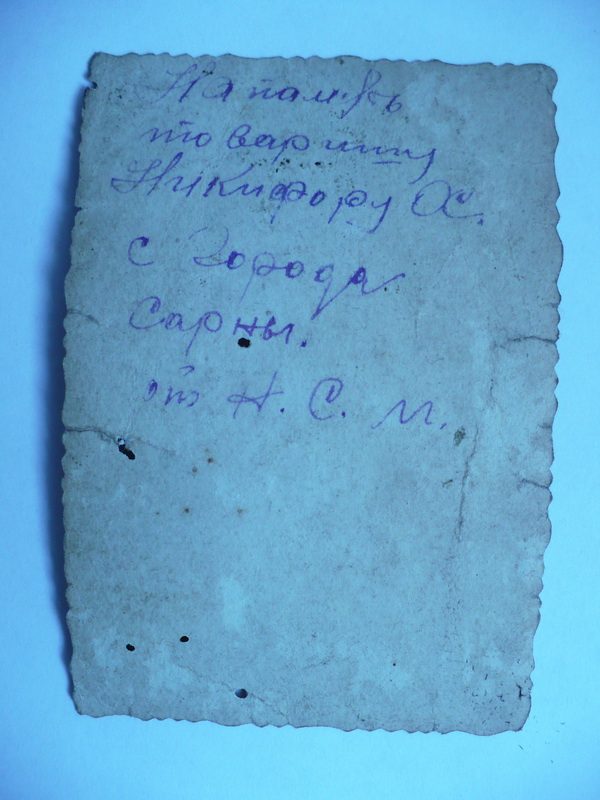 На память
товарищу
Никифору Ос.
с города
Сарны.
от Н. С. М.